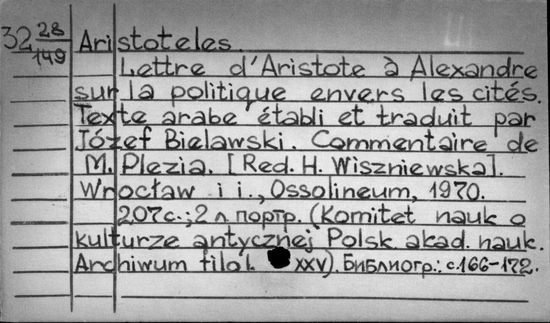 32 28/149 Aristoteles.
Lettre d'Aristote à Alexandre
sur la politique envers les cités.
Texte arabe établi et traduit par
Józef Bielawski. Commentaire de
M. Plezia. [Red. H. Wiszniewska].
Wrocław i i., Ossolineum, 1970.
207с.; 2 л. портр. (Komitet nauk o
kulturze antycznej Polsk. akad. nauk.
Archiwum filol. XXV). Библиогр.: с.166-172.